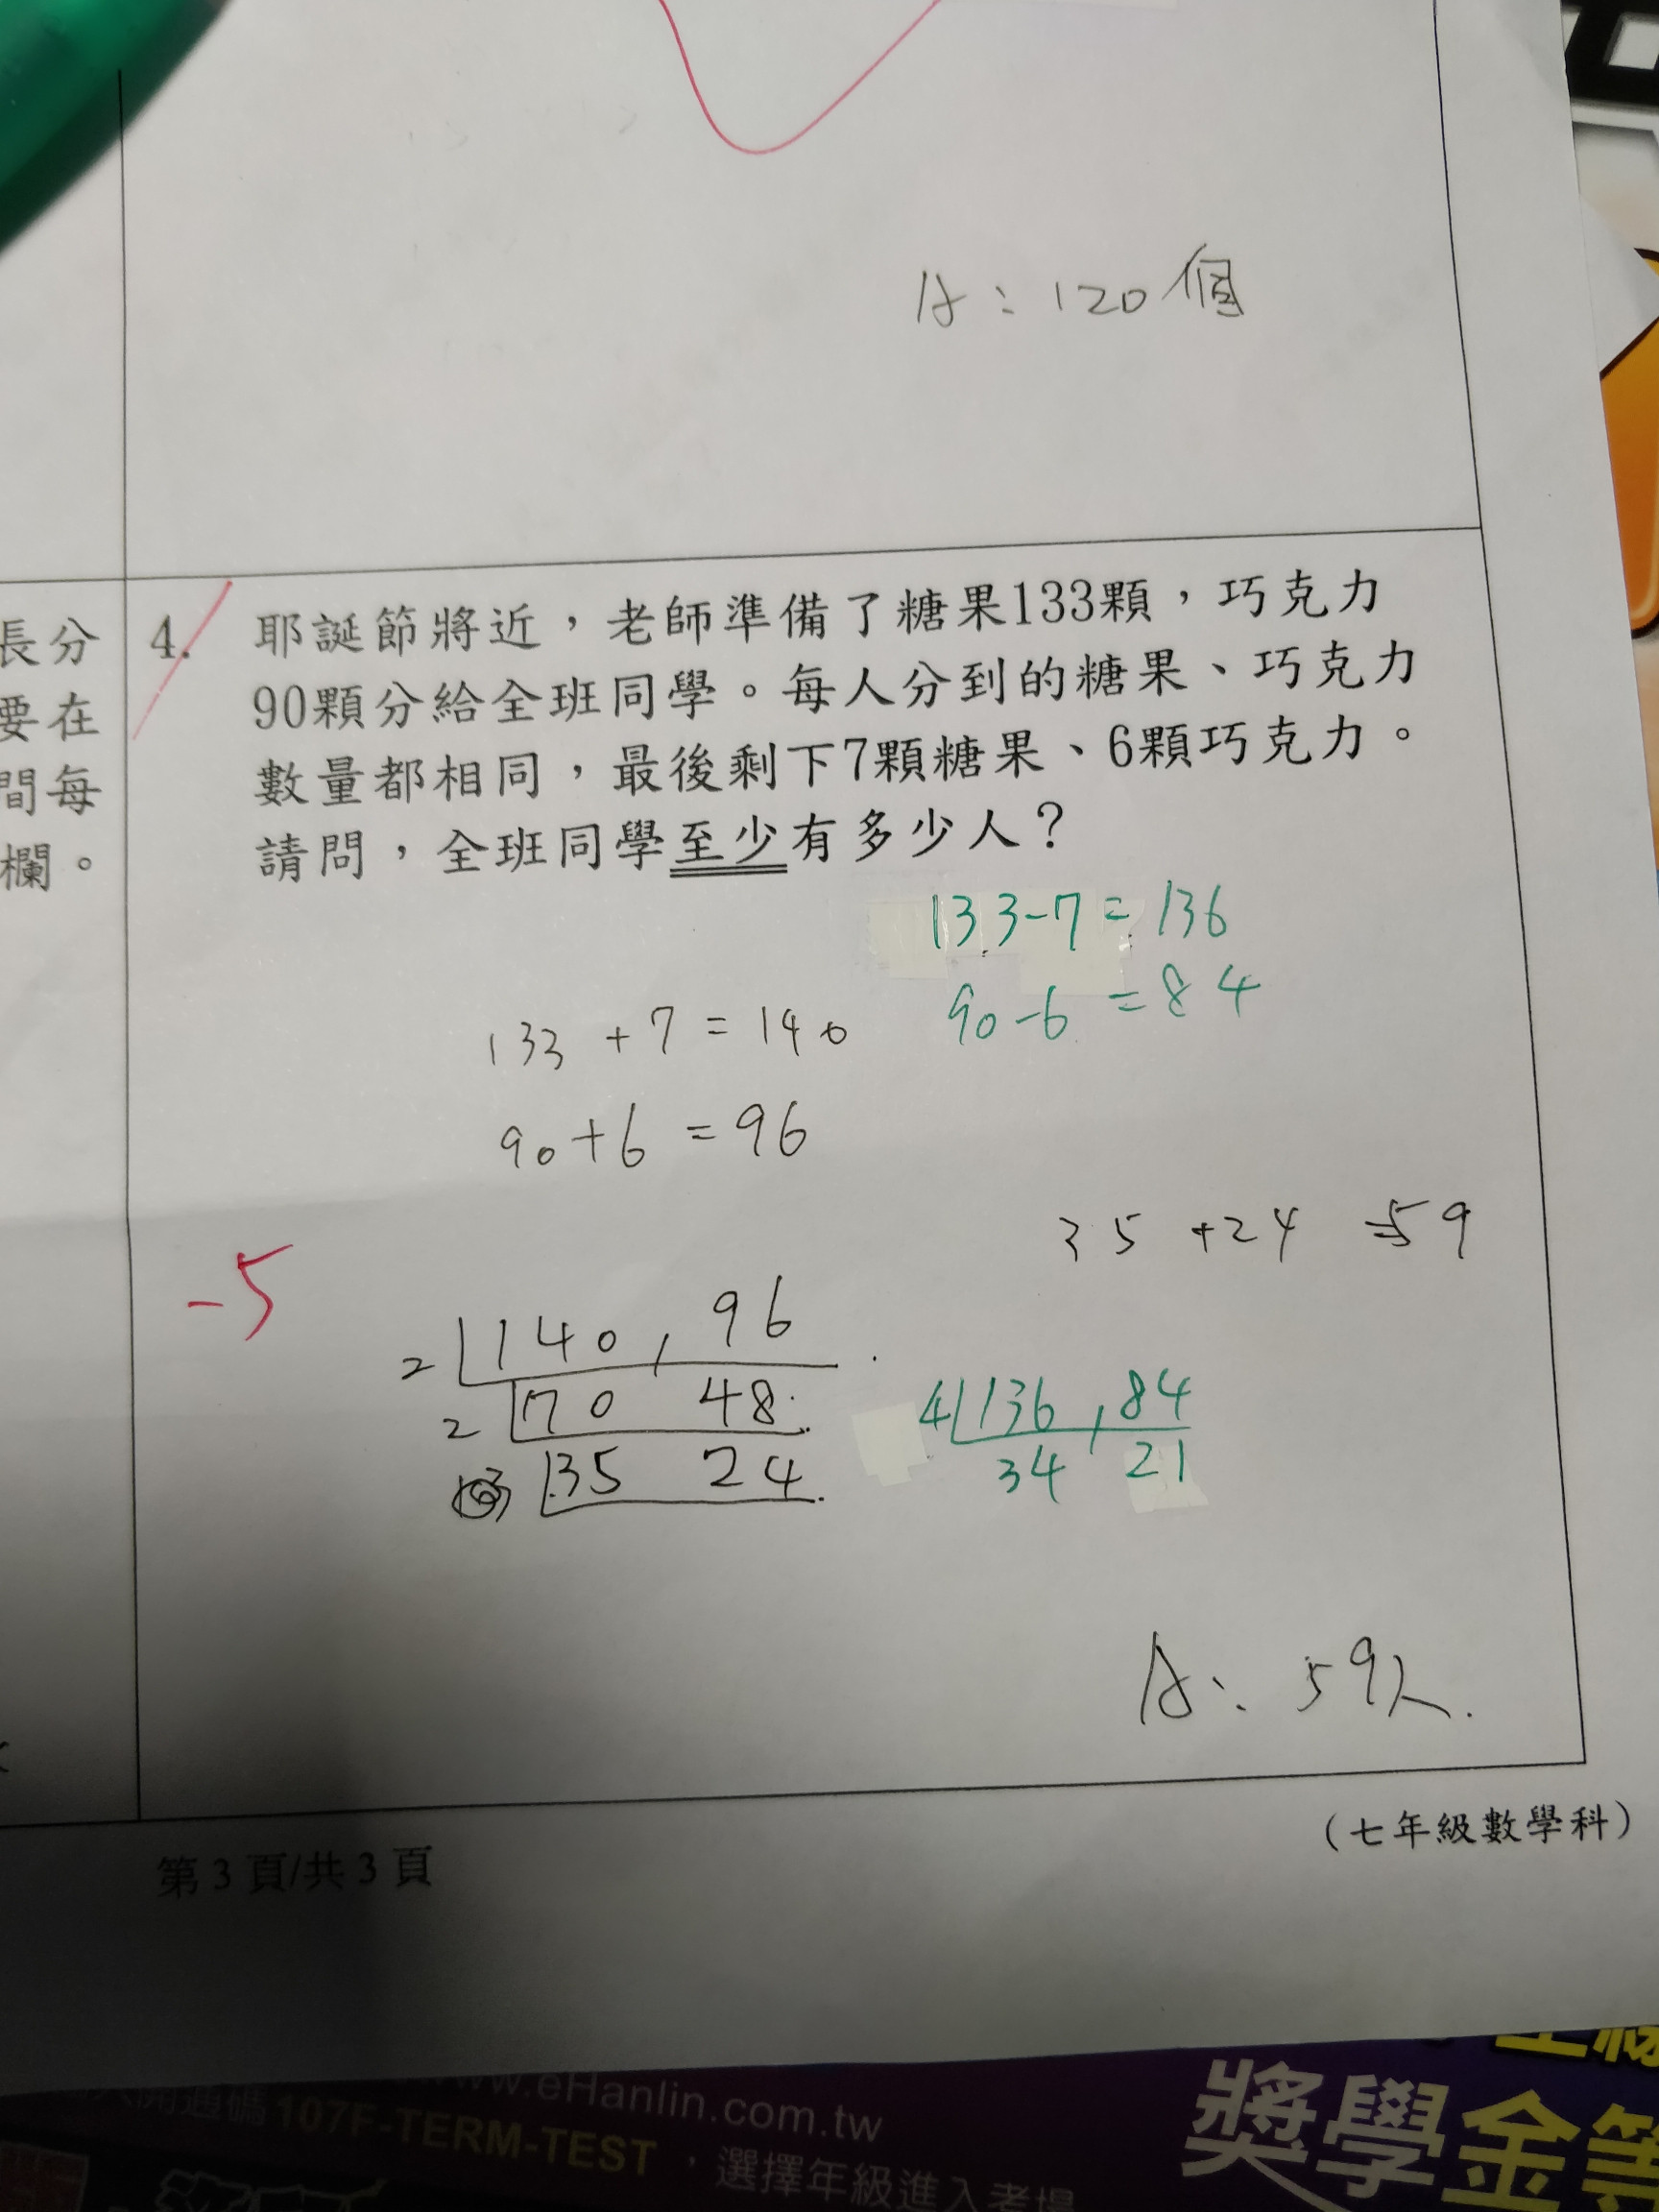 A：120個
長分
要在
間每
欄。
4. 耶誕節將近，老師準備了糖果133顆，巧克力
90顆分給全班同學。每人分到的糖果、巧克力
數量都相同，最後剩下7顆糖果、6顆巧克力。
請問，全班同學至少有多少人？
133-7=136
90-6=84
133+7=140
90+6=96
35+24=59
-5
2 140, 96
2 70 48
35 24
4 136, 84
34 21
A：59人.
(七年級數學科)
第3頁/共3頁
www.eHanlin.com.tw
開通碼107F-TERM-TEST，選擇年級進入考場
獎學金等